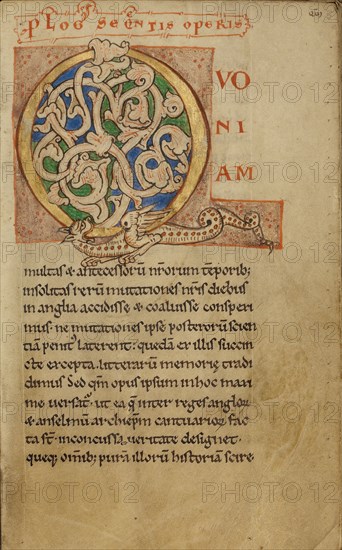 PLOG SEENTIS OPERIS
QVO
NI
AM
multas & antecessorū nr̄orum tēporib;
insolitas rerū mutationes nr̄is diebus
in anglia accidisse & coaluisse conspexi
mus. ne mutationes ipse posterorū scien
tiam penit laterent: quedā ex illis succin
cte excepta. litterarū memorie tradi
dimus. Sed qm̄ opus ipsum in hoc maxi
me versat. ut ea q̄ inter reges anglorū
& anselmū archiep̄m cantuarioꝝ fac
ta st̄. inconcussa veritate designet.
queq; om̄ib; purā illorū historiā scire